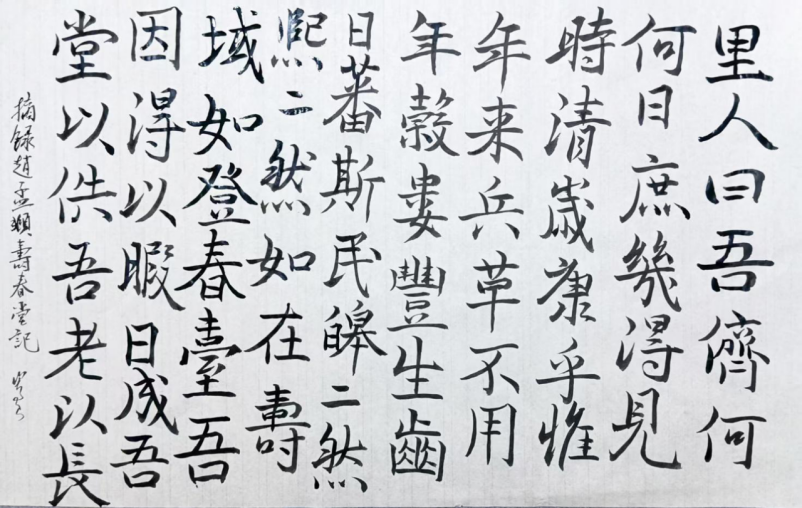 里人曰吾儕何
何日庶幾得見
時清歲康乎惟
年来兵草不用
年穀婁豐生齒
日蕃斯民皡二然
熙二然如在壽
域如登春臺吾
因得以暇日成吾
堂以供吾老以長
摘録趙孟頫壽春堂記